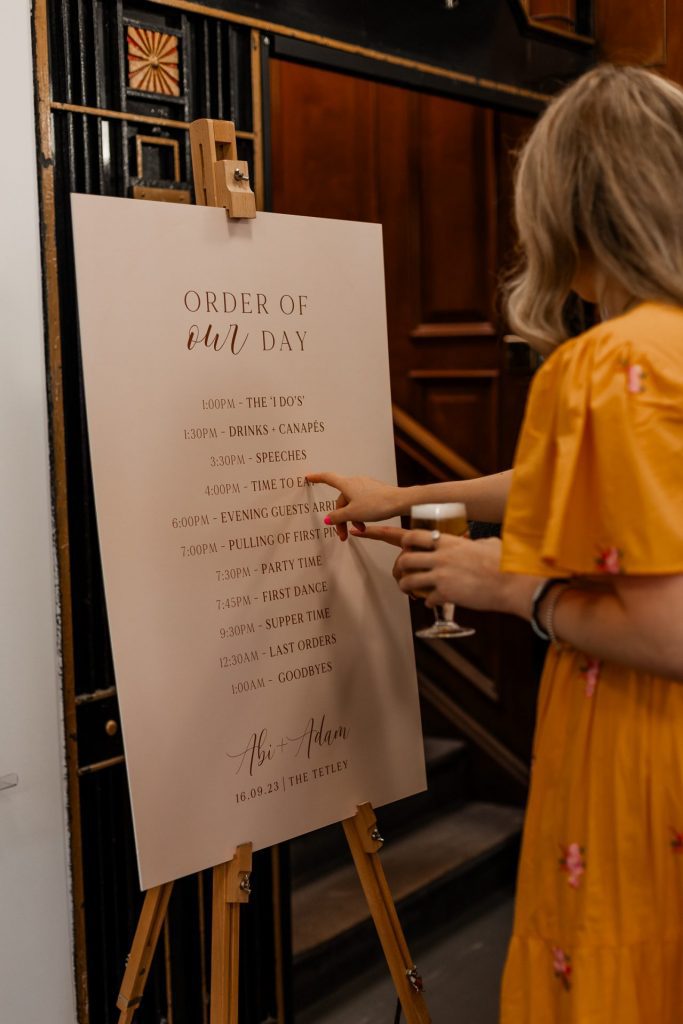 ORDER OF
our DAY
1:00PM - THE 'I DO'S'
1:30PM - DRINKS + CANAPÉS
3:30PM - SPEECHES
4:00PM - TIME TO
6:00PM - EVENING GUESTS
7:00PM - PULLING OF FIRST
7:30PM - PARTY TIME
7:45PM - FIRST DANCE
9:30PM - SUPPER TIME
12:30AM - LAST ORDERS
1:00AM - GOODBYES
Abi + Adam
16.09.23 | THE TETLEY